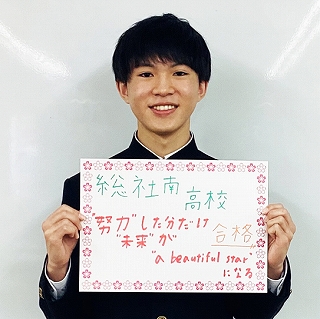 総社南高校
"努力"した分だけ
"未来"が
合格
"a beautiful star"
になる